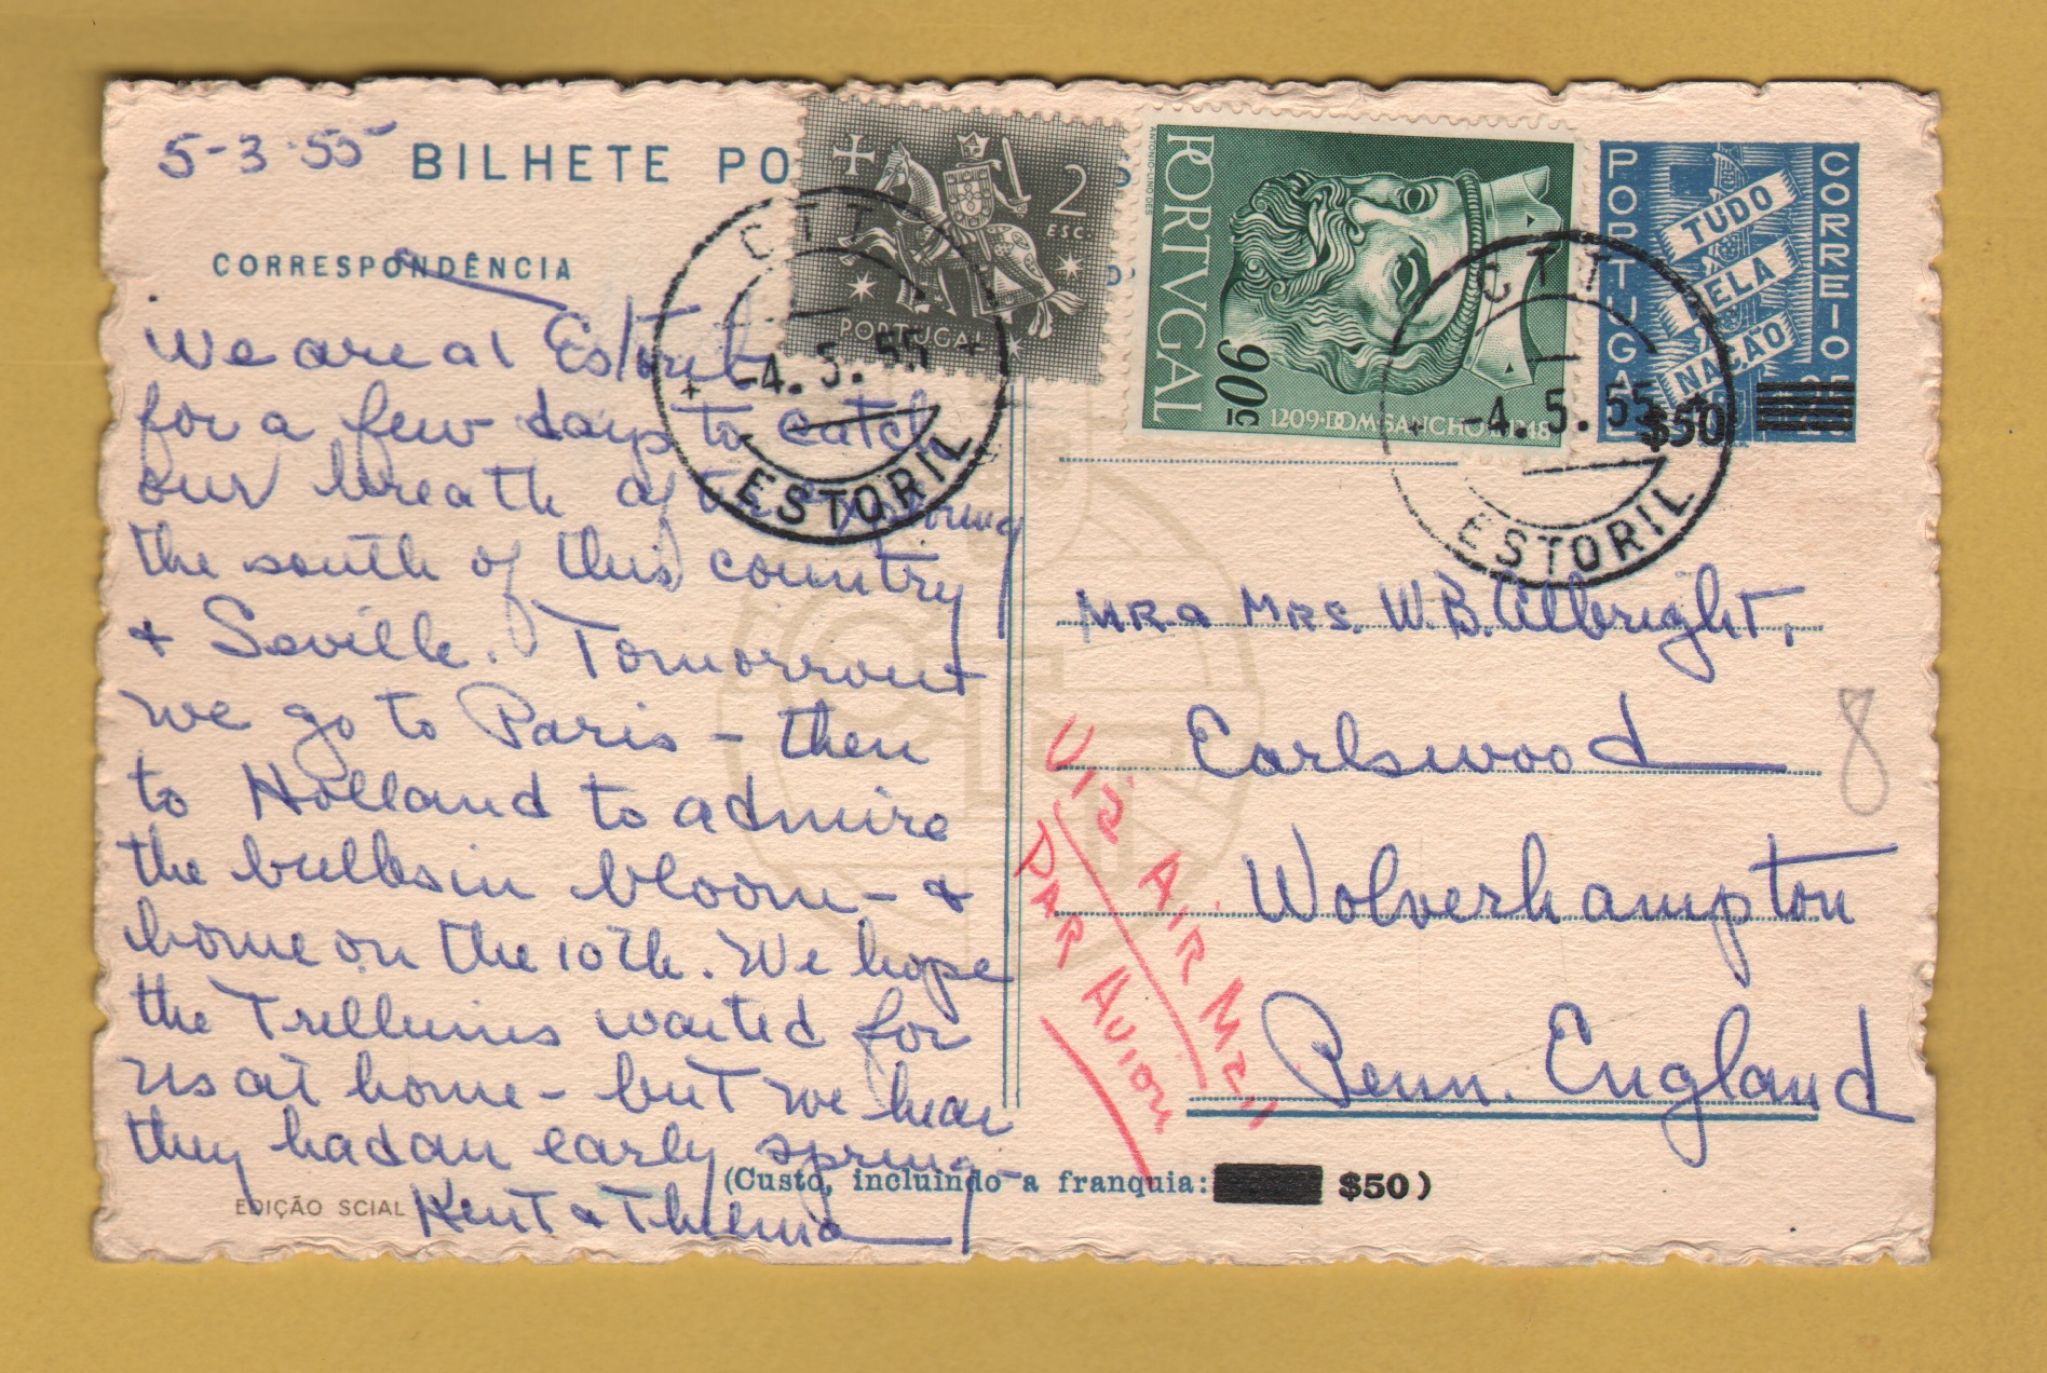 5-3-55
BILHETE PO
CORRESPONDÊNCIA
We are at Estoril
for a few days to catch
our breath after exploring
the south of this country
& Seville. Tomorrow
we go to Paris - then
to Holland to admire
the bulbs in bloom - &
home on the 10th. We hope
the Trilliums waited for
us at home - but we hear
they had an early spring -
Kent & Thelma
EDIÇÃO SCIAL
2
ESC.
PORTUGAL
CTT
-4. 5. 55
ESTORIL
PORTVGAL
90c
1209·DOM SANCHO II·1248
CTT
-4. 5. 55
ESTORIL
PORTUGAL
CORREIO
TUDO
PELA
NAÇÃO
$50
MR. & MRS. W. B. Albright,
Earlswood
Wolverhampton
Penn. England
8
VIA AIR MAIL
PAR AVION
(Custo, incluindo a franquia: $50)